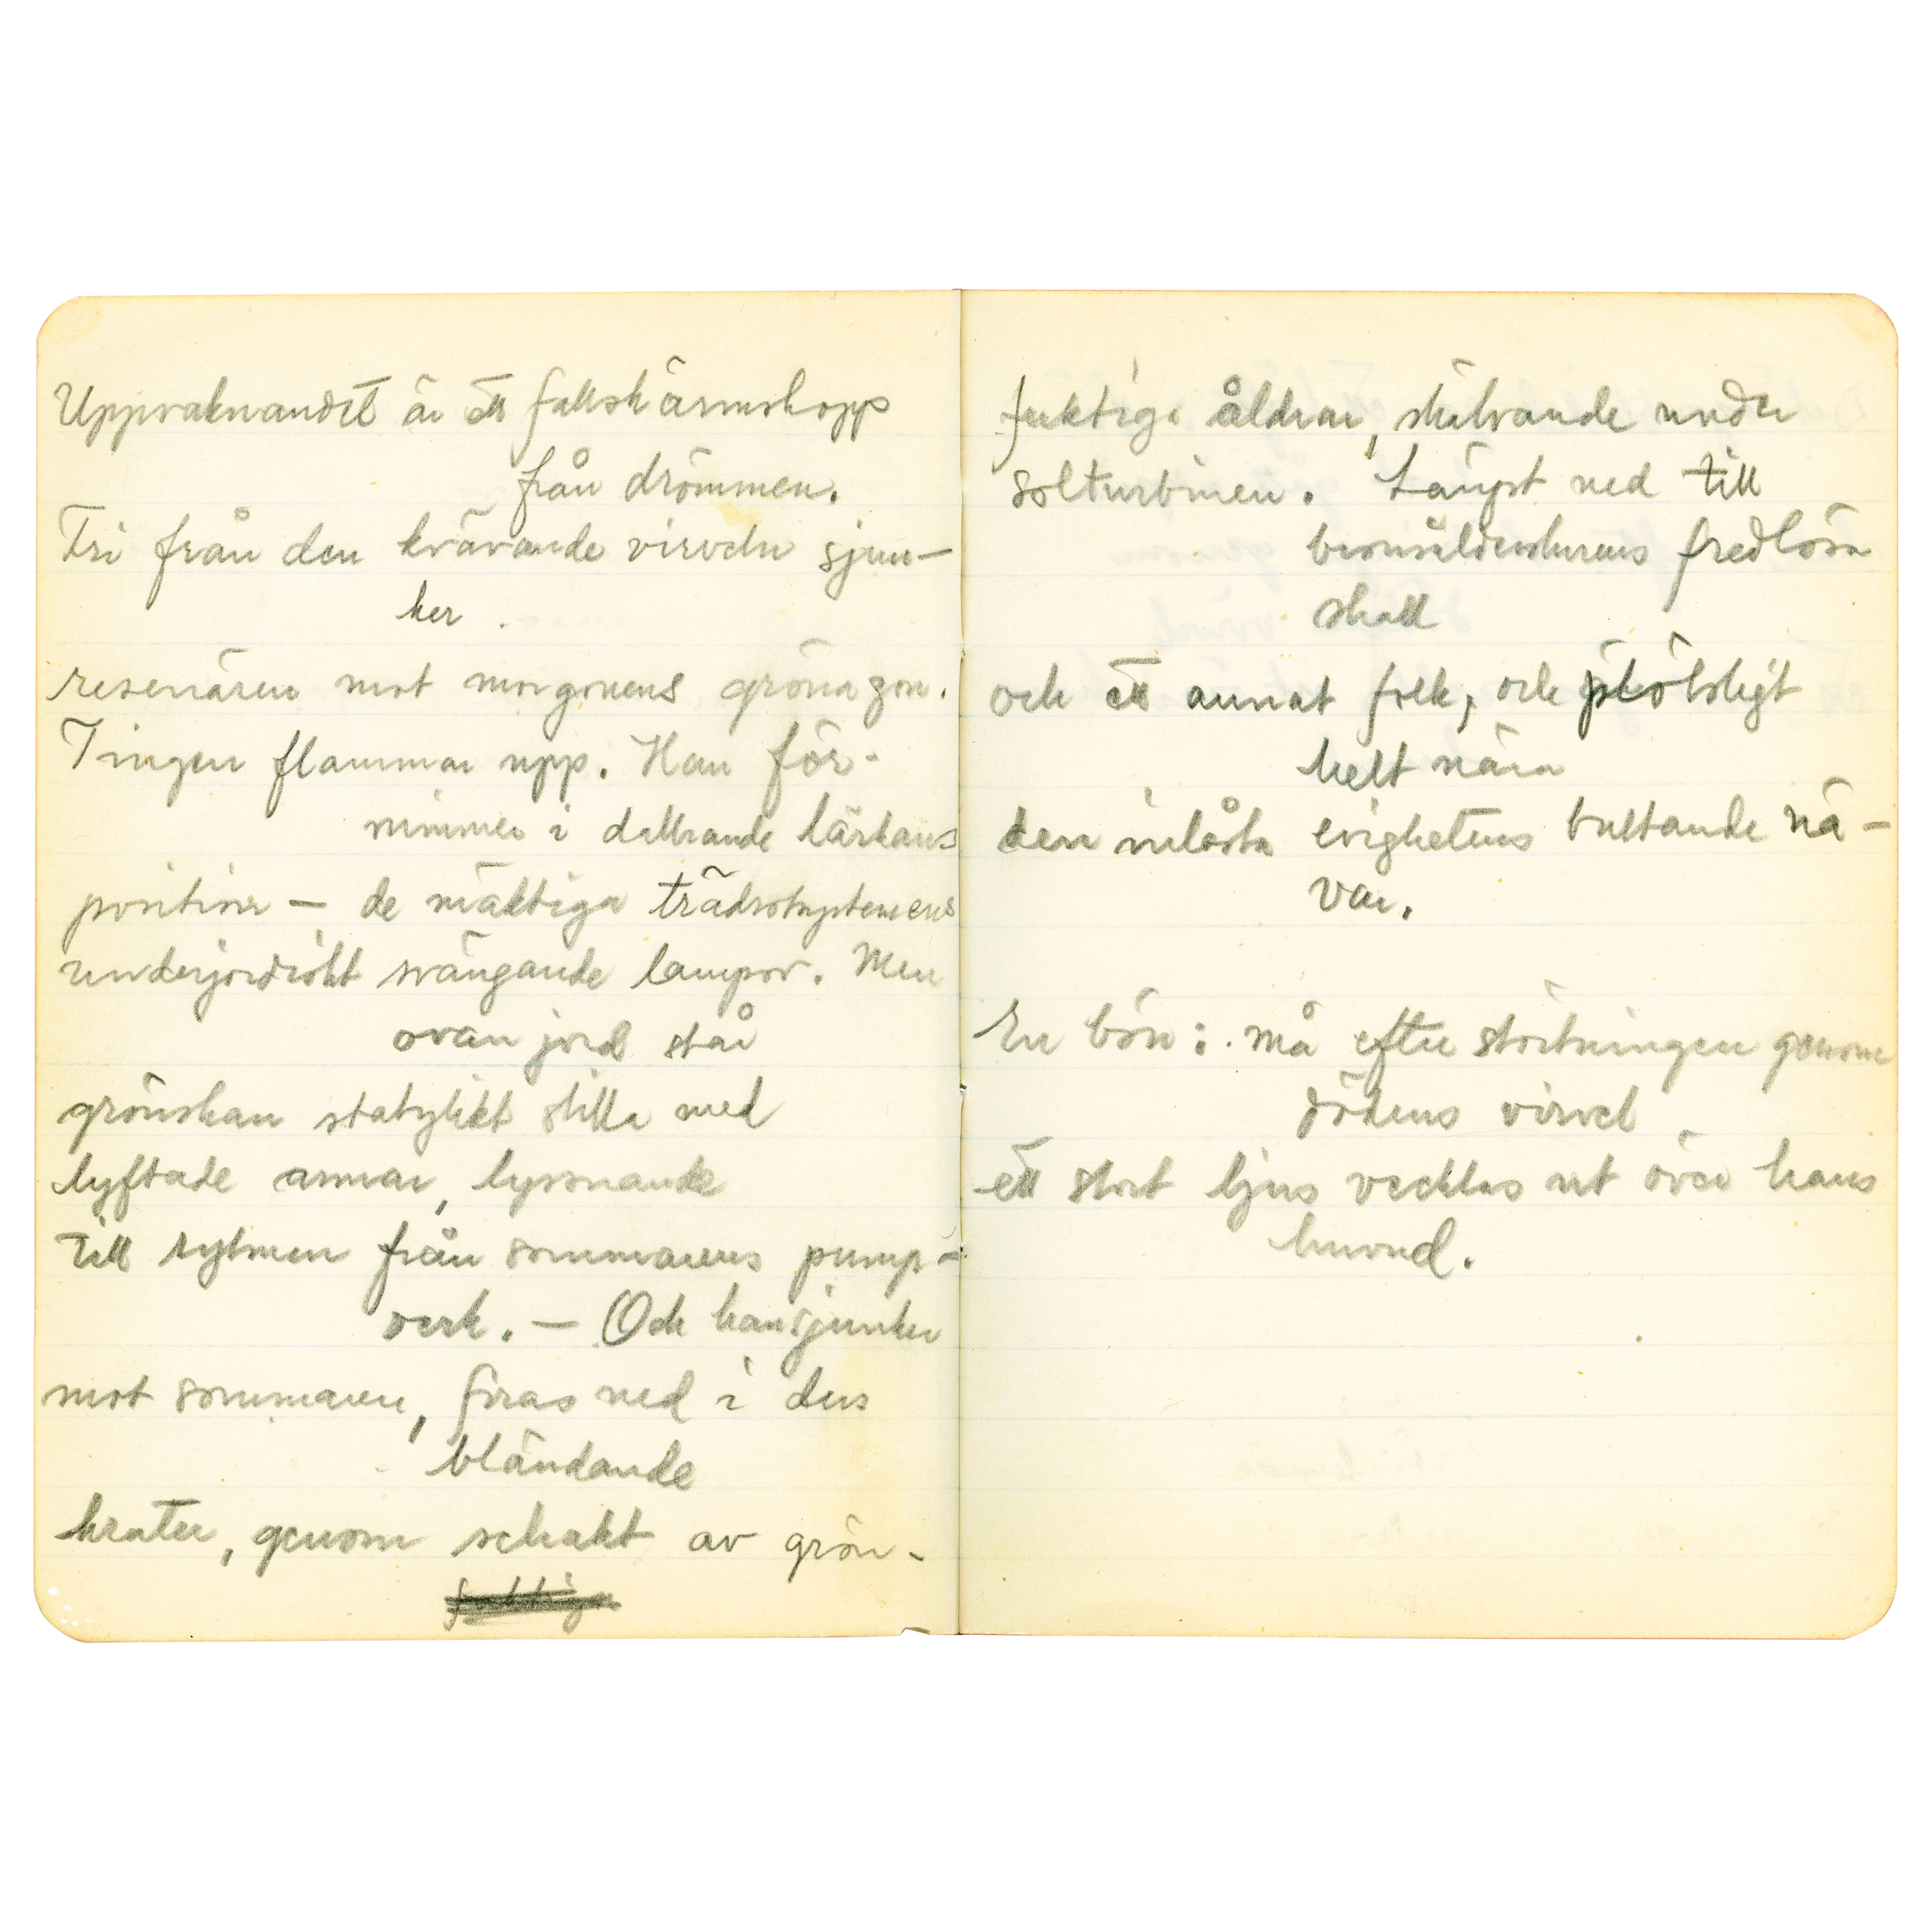 Uppvaknandet är ett fallskärmshopp
från drömmen.
Fri från den kvävande virveln sjun-
ker
resenären mot morgonens gröna zon.
Tingen flammar upp. Han för-
nimmer i dallrande lärkans
position — de mäktiga trädrotsystemens
underjordiskt svängande lampor. Men
ovan jord står
grönskan statylikt stilla med
lyftade armar, lyssnande
till rytmen från sommarens pump-
verk. — Och han sjunker
mot sommaren, firas ned i dess
bländande
krater, genom schakt av grön-
fuktiga åldrar, skälvande under
solturbinen. Längst ned till
fredlösa
skall
och ett annat folk, och plötsligt
helt nära
den inlåsta evighetens bultande nä-
var.
En bön: må efter störtningen genom
dödens virvel
ett stort ljus vecklas ut över hans
huvud.